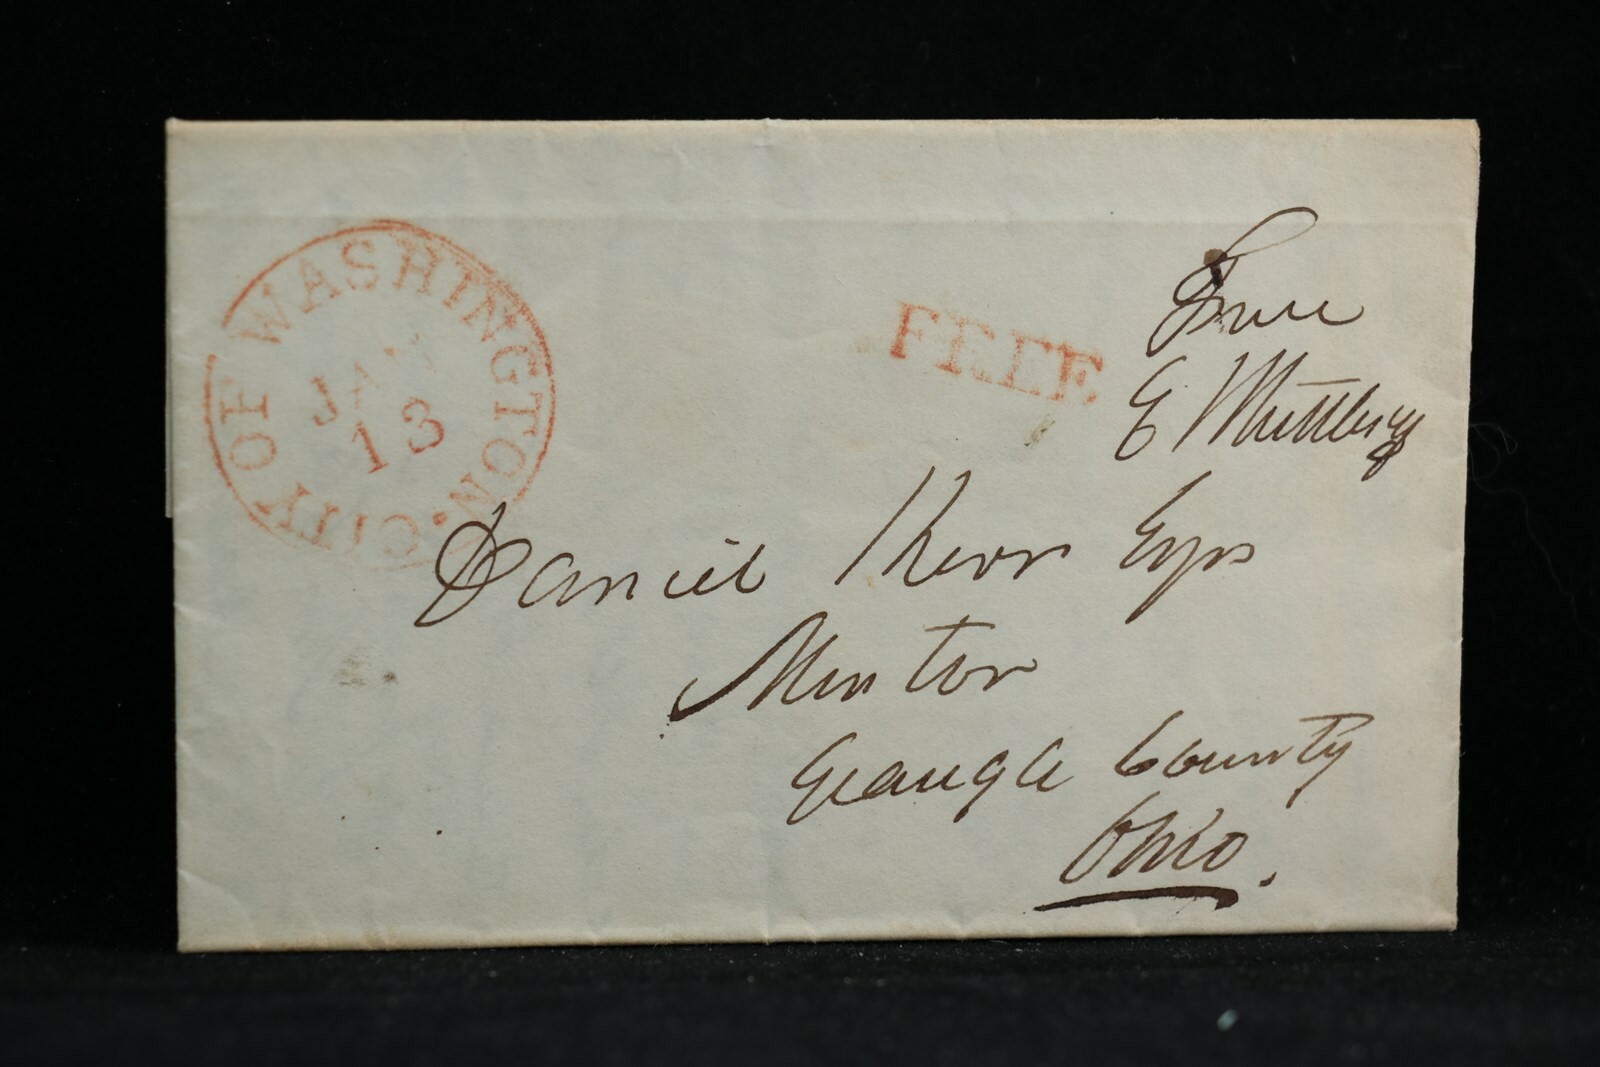 CITY OF WASHINGTON.
JAN
13
FREE
Free
E Whittlesey
Daniel Kerr Esqr
Mentor
Geauga County
Ohio.